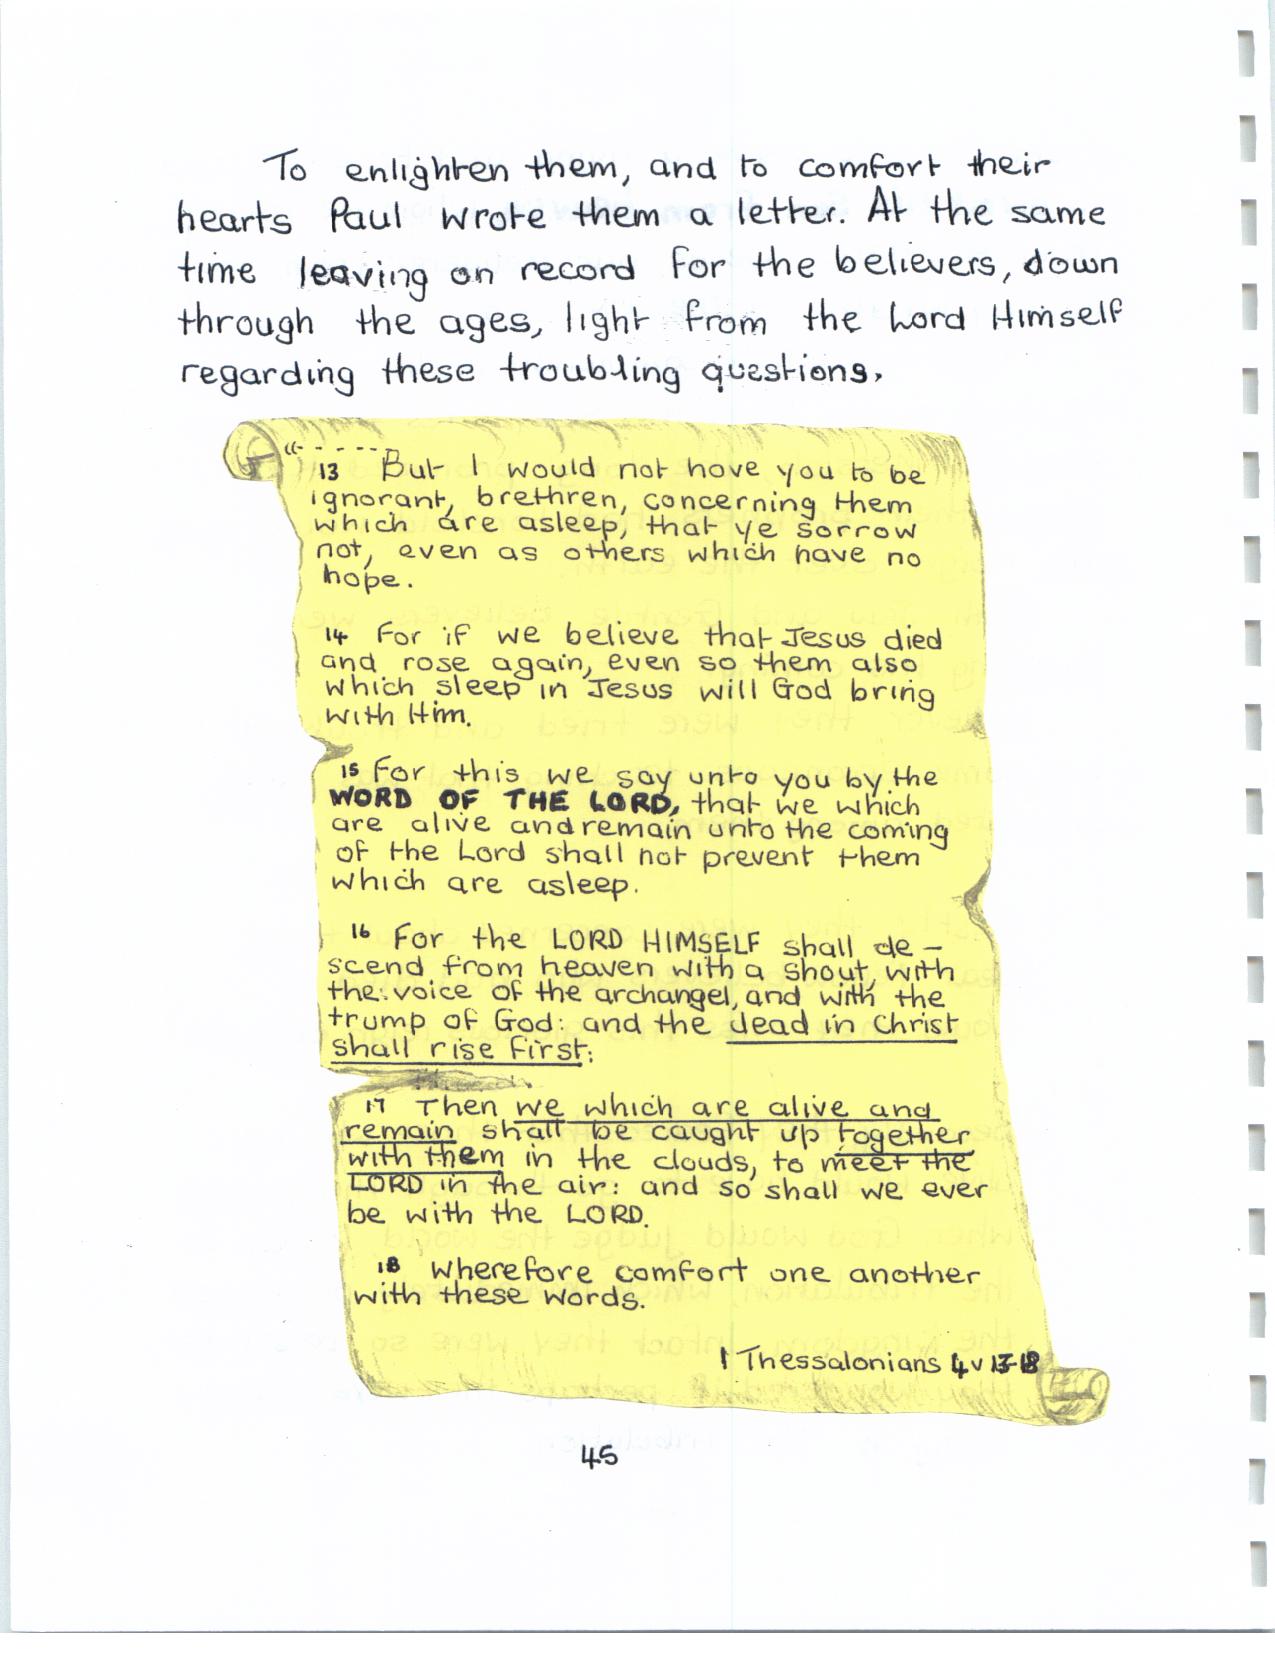 To enlighten them, and to comfort their
hearts Paul wrote them a letter. At the same
time leaving on record for the believers, down
through the ages, light from the Lord Himself
regarding these troubling questions.
“-----
13 But I would not have you to be
ignorant, brethren, concerning them
which are asleep, that ye sorrow
not, even as others which have no
hope.
14 For if we believe that Jesus died
and rose again, even so them also
which sleep in Jesus will God bring
with Him.
15 For this we say unto you by the
WORD OF THE LORD, that we which
are alive and remain unto the coming
of the Lord shall not prevent them
which are asleep.
16 For the LORD HIMSELF shall de-
scend from heaven with a shout, with
the voice of the archangel, and with the
trump of God: and the dead in Christ
shall rise first:
17 Then we which are alive and
remain shall be caught up together
with them in the clouds, to meet the
LORD in the air: and so shall we ever
be with the LORD.
18 wherefore comfort one another
with these words.
1 Thessalonians 4 v 13-18
45